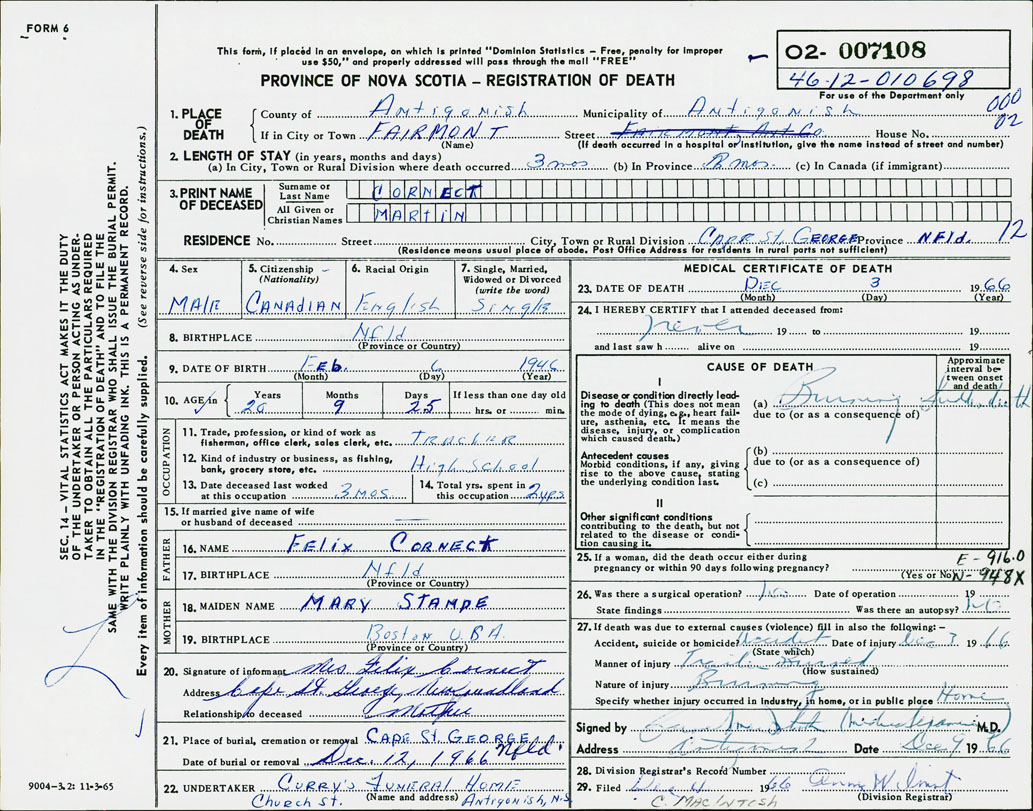 FORM 6
This form, if placed in an envelope, on which is printed "Dominion Statistics – Free, penalty for improper
use $50," and properly addressed will pass through the mail "FREE"
PROVINCE OF NOVA SCOTIA – REGISTRATION OF DEATH
02- 007108
46-12-010698
For use of the Department only
000
02
1. PLACE OF DEATH
County of Antigonish Municipality of Antigonish
If in City or Town FAIRMONT Street Fairmont, Ant Co. House No.
(Name) (If death occurred in a hospital or institution, give the name instead of street and number)
2. LENGTH OF STAY (in years, months and days)
(a) In City, Town or Rural Division where death occurred 3 mos (b) In Province 3 mos. (c) In Canada (if immigrant)
3. PRINT NAME OF DECEASED
Surname or Last Name CORNECT
All Given or Christian Names MARTIN
RESIDENCE No. Street City, Town or Rural Division CAPE ST. GEORGE Province NFld. 12
(Residence means usual place of abode. Post Office Address for residents in rural parts not sufficient)
4. Sex
MALE
5. Citizenship
(Nationality)
CANADIAN
6. Racial Origin
English
7. Single, Married, Widowed or Divorced
(write the word)
Single
8. BIRTHPLACE Nfld
(Province or Country)
9. DATE OF BIRTH Feb. 6 1946
(Month) (Day) (Year)
10. AGE in Years Months Days If less than one day old
20 9 25 hrs. or min.
OCCUPATION
11. Trade, profession, or kind of work as
fisherman, office clerk, sales clerk, etc. TEACHER
12. Kind of industry or business, as fishing,
bank, grocery store, etc. High School
13. Date deceased last worked
at this occupation 3 mos
14. Total yrs. spent in
this occupation 2 yrs.
15. If married give name of wife
or husband of deceased —
FATHER
16. NAME FELIX CORNECT
17. BIRTHPLACE Nfld
(Province or Country)
MOTHER
18. MAIDEN NAME MARY STAMPE
19. BIRTHPLACE Boston USA
(Province or Country)
20. Signature of informant Mrs Felix Cornect
Address Cape St. George, Newfoundland
Relationship to deceased Mother
21. Place of burial, cremation or removal CAPE ST. GEORGE Nfld.
Date of burial or removal Dec. 12, 1966
22. UNDERTAKER CURRY'S FUNERAL HOME
Church St. (Name and address) Antigonish, N.S.
MEDICAL CERTIFICATE OF DEATH
23. DATE OF DEATH DEC 3 1966
(Month) (Day) (Year)
24. I HEREBY CERTIFY that I attended deceased from:
never 19 to 19
and last saw h alive on 19
CAUSE OF DEATH
Approximate interval between onset and death
I
Disease or condition directly leading
to death (This does not mean
the mode of dying, e.g., heart failure,
asthenia, etc. It means the
disease, injury, or complication
which caused death.)
(a) Burning
due to (or as a consequence of)
Antecedent causes
Morbid conditions, if any, giving
rise to the above cause, stating
the underlying condition last.
(b)
due to (or as a consequence of)
(c)
II
Other significant conditions
contributing to the death, but not
related to the disease or condition
causing it.
25. If a woman, did the death occur either during
pregnancy or within 90 days following pregnancy? (Yes or No)
E-916.0
N-948X
26. Was there a surgical operation? No Date of operation 19
State findings Was there an autopsy? No
27. If death was due to external causes (violence) fill in also the following:–
Accident, suicide or homicide? Accident Date of injury Dec 3 1966
(State which)
Manner of injury Trailer Burned
(How sustained)
Nature of injury Burning
Specify whether injury occurred in Industry, in home, or in public place Home
Signed by M.D.
Address Date Dec 9 1966
28. Division Registrar's Record Number
29. Filed 1966
(Division Registrar)
C. MACINTOSH
SEC. 14 – VITAL STATISTICS ACT MAKES IT THE DUTY
OF THE UNDERTAKER OR PERSON ACTING AS UNDERTAKER
TO OBTAIN ALL THE PARTICULARS REQUIRED
IN THE "REGISTRATION OF DEATH" AND TO FILE THE
SAME WITH THE DIVISION REGISTRAR WHO SHALL ISSUE THE BURIAL PERMIT.
WRITE PLAINLY WITH UNFADING INK. THIS IS A PERMANENT RECORD.
Every item of information should be carefully supplied. (See reverse side for instructions.)
9004-3.2: 11-3-65